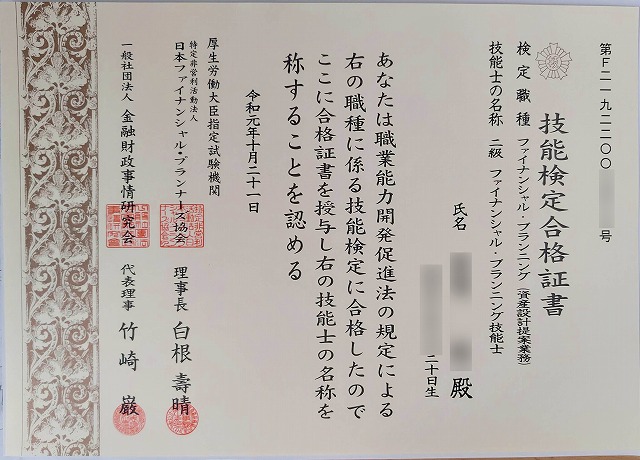 第F二一九二二〇〇
号
技能検定合格証書
検定職種 ファイナンシャル・プランニング（資産設計提案業務）
技能士の名称 二級 ファイナンシャル・プランニング技能士
氏名
殿
二十日生
あなたは職業能力開発促進法の規定による
右の職種に係る技能検定に合格したので
ここに合格証書を授与し右の技能士の名称を
称することを認める
令和元年十月二十一日
厚生労働大臣指定試験機関
特定非営利活動法人
日本ファイナンシャル・プランナーズ協会
理事長 白根壽晴
一般社団法人 金融財政事情研究会
代表理事 竹崎巌